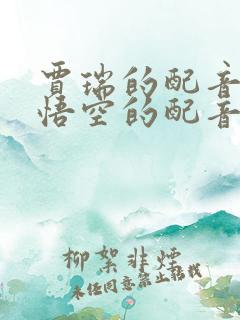 贾瑞的配音
悟空的配音
柳絮非烟
未经同意禁止搭载